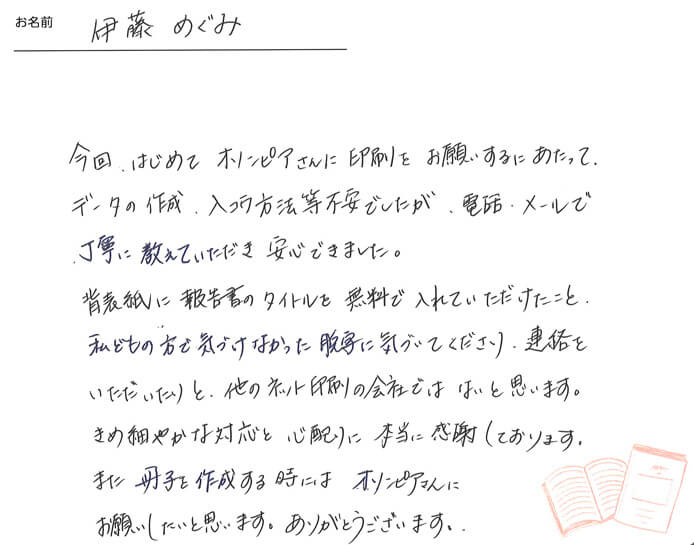 お名前 伊藤 めぐみ
今回、はじめて オリンピアさんに 印刷を お願いするに あたって、
データの 作成、入コウ方法等不安でしたが、電話・メールで
丁寧に 教えていただき 安心できました。
背表紙に 報告書の タイトルを 無料で 入れていただけたこと、
私どもの 方で 気づけなかった 脱字に 気づいてくださり、連絡を
いただいたりと、他の ネット印刷の 会社では ないと 思います。
きめ細やかな 対応と 心配りに 本当に 感謝しております。
また 冊子を 作成する 時には オリンピアさんに
お願いしたいと思います。ありがとうございます。